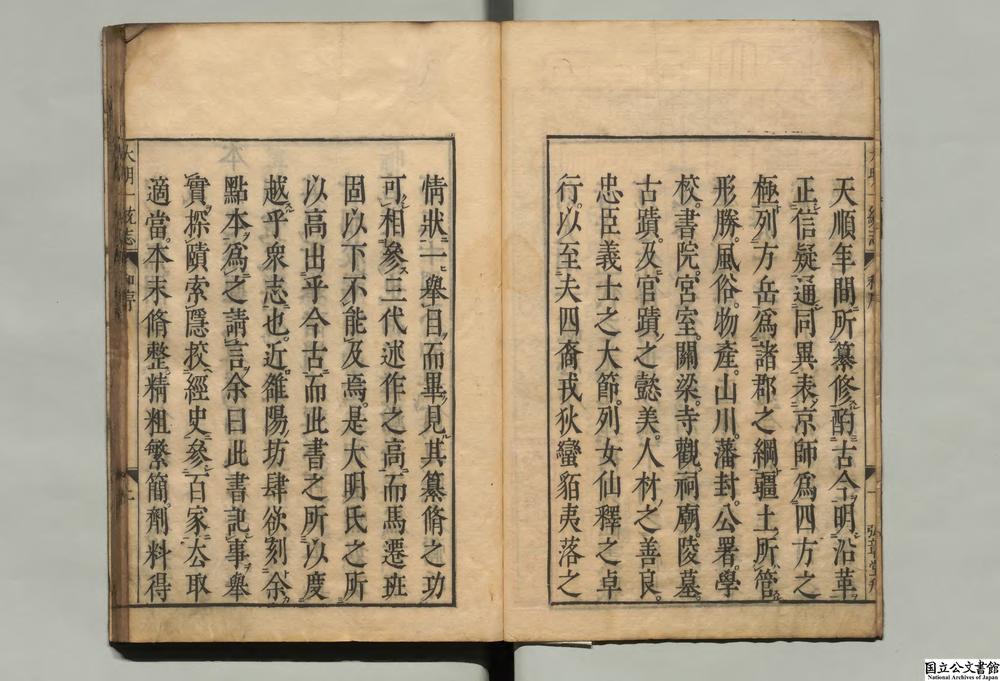 天順年間所纂修酌古今明沿革
正信疑通同異表京師爲四方之
極列方岳爲諸郡之綱疆土所管
形勝風俗物產山川藩封公署學
校書院宮室關梁寺觀祠廟陵墓
古蹟及官蹟之懿美人材之善良
忠臣義士之大節列女仙釋之卓
行以至夫四裔戎狄蠻貊夷落之
情狀一舉目而畢見其纂脩之功
可相參三代述作之高而馬遷班
固以下不能及焉是大明氏之所
以高出乎今古而此書之所以度
越乎衆志也近雒陽坊肆欲刻余
點本爲之請言余曰此書記事舉
實探賾索隱挍經史參百家公取
適當本末脩整精粗繁簡劑料得
大明一統志
和序
二
国立公文書館
National Archives of Japan